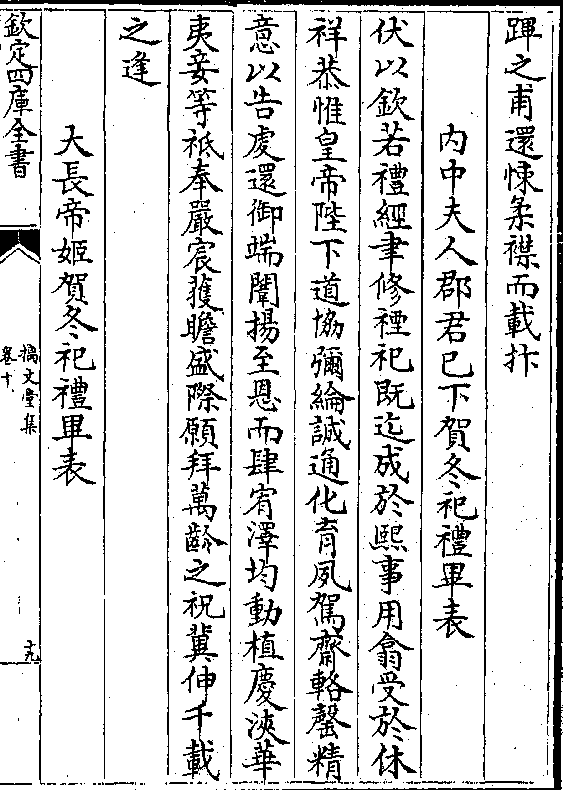 踵之甫還悚柔襟而載抃
内中夫人郡君已下賀冬祀禮畢表
伏以欽若禮經聿修禋祀既迄成於熙事用翕受於休
祥恭惟皇帝陛下道協彌綸誠通化育夙駕齋輅罄精
意以告虔還御端闈揚至恩而肆宥澤均動植慶浹華
夷妾等祇奉嚴宸獲瞻盛際願拜萬齡之祝冀伸千載
之逢
大長帝姬賀冬祀禮畢表
欽定四庫全書
摛文堂集
卷十
十九